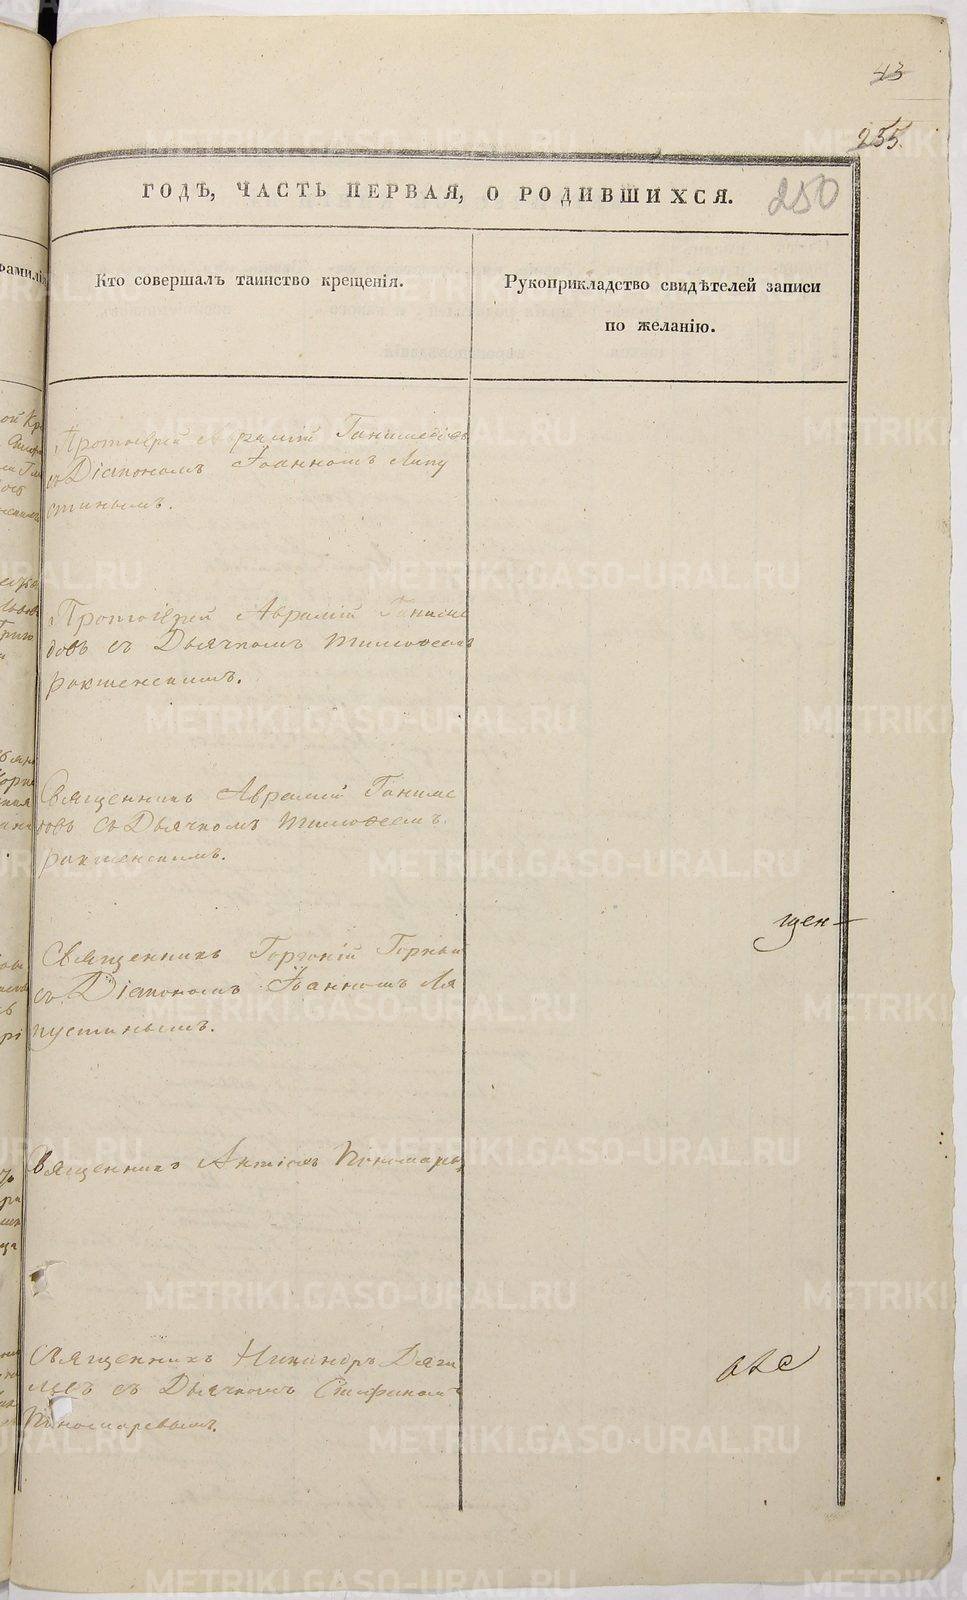 43
255.
ГОДѢ, ЧАСТЬ ПЕРВАЯ, О РОДИВШИХСЯ.
250
Кто совершалъ таинство крещенія.
Рукоприкладство свидѣтелей записи
по желанію.
Протоіерей Аврамій Ганимедовъ
съ Діакономъ Іоанномъ Ляпу
стинымъ.
Протоіерей Аврамій Ганиме
довъ съ Дьячкомъ Тимоѳеемъ
Священникъ Аврамій Ганиме
довъ съ Дьячкомъ Тимоѳеемъ
Священникъ Горгоній
съ Діакономъ Іоанномъ Ля
пустинымъ.
щен
Священникъ Пономаре
Священникъ Никаноръ Дяги
левъ съ Дьячкомъ Стефаномъ
Пономаревымъ.
METRIKI.GASO-URAL.RU